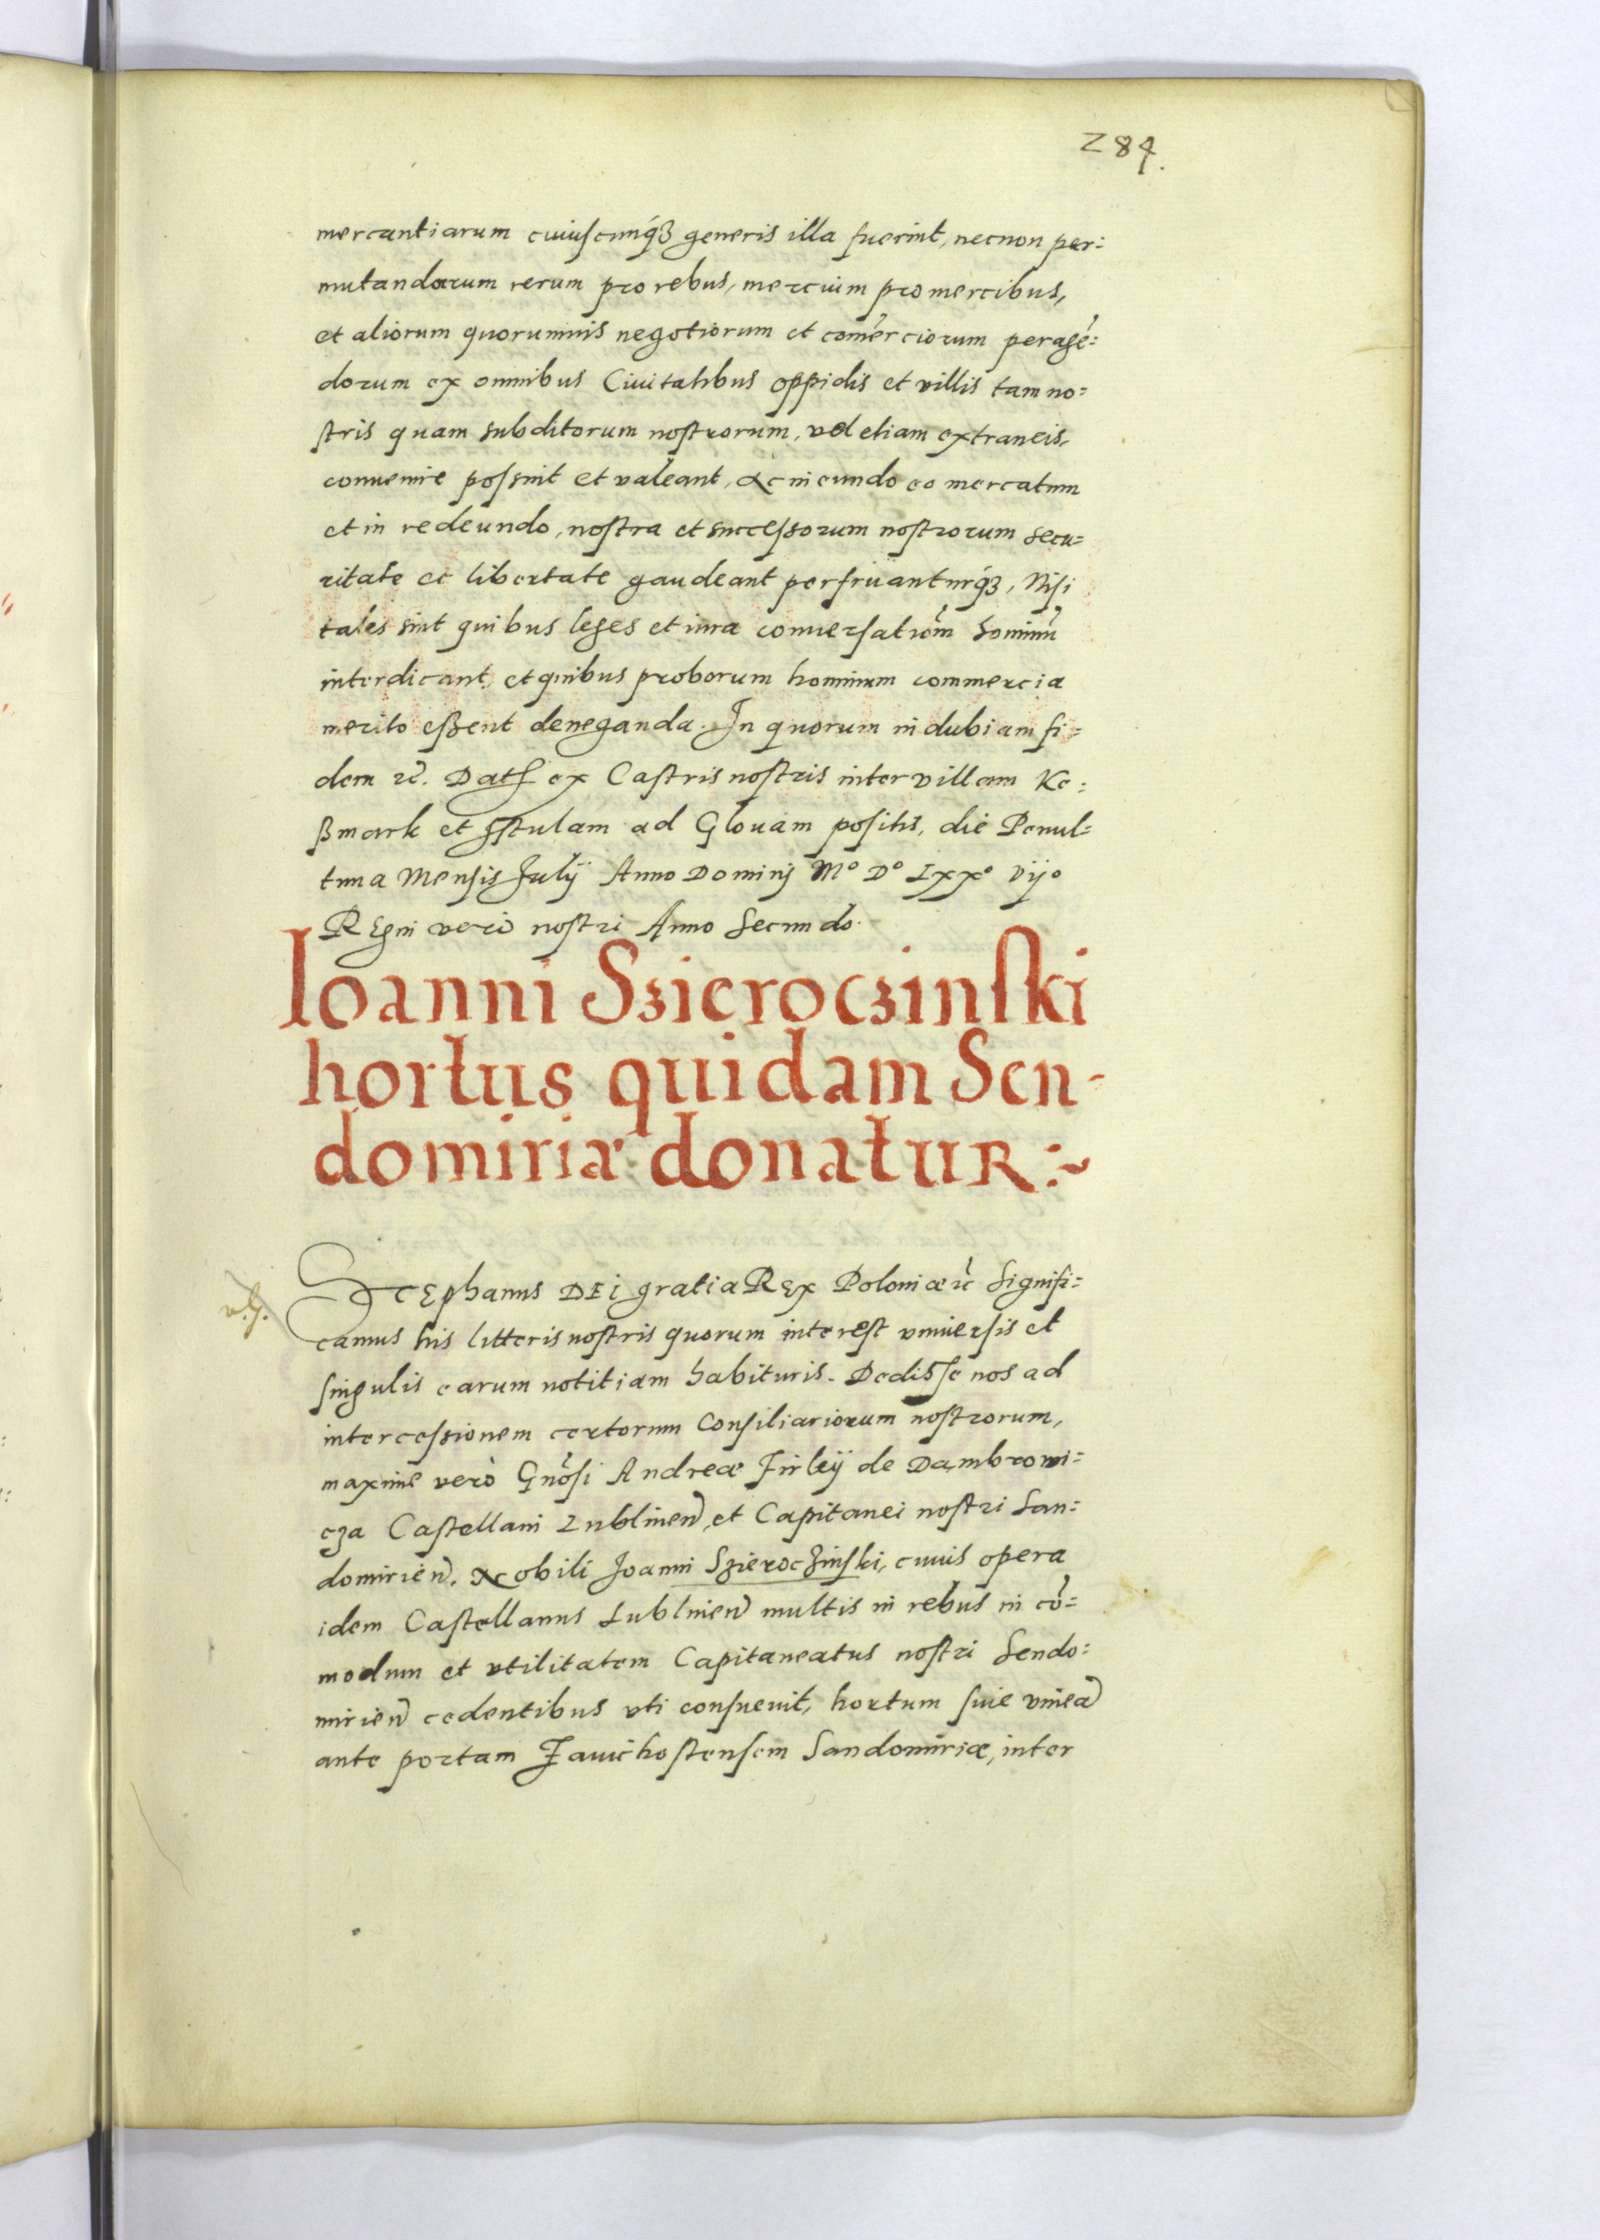 284.
mercantiarum cuiuscunq́ꝫ generis illa fuerint, necnon per:
mutandarum rerum pro rebus, mercium pro mercibus,
et aliorum quorumuis negotiorum et com̃erciorum peragẽ:
dorum ex omnibus Ciuitatibus oppidis et villis tam no:
stris quam subditorum nostrorum, vel etiam extraneis,
conuenire possint et valeant, ac in eundo eo mercatum
et in redeundo, nostra et successorum nostrorum secu:
ritate et libertate gaudeant perfruanturq́ꝫ, Nisi
tales sint quibus leges et iura conuersatiõm hominũ
interdicant, et quibus proborum hominum commercia
merito eßent deneganda. In quorum indubiam fi:
dem ꝛc̃. Datꝭ ex Castris nostris inter villam Ke:
ßmark et Istulam ad Glovam positis, die Penul:
tima Mensis Julij Anno Dominj Mº Dº Lxxº vijº
REgni verò nostri Anno Secundo.
Ioanni Sзieroczinski
hortus quidam Sen-
domiriæ donatuR:~
v.g.
StEphanus DEI gratia REx Poloniæ ꝛc̃ Signifi:
camus his litteris nostris quorum interest vniuersis et
singulis earum notitiam habituris. Dedisse nos ad
intercessionem certorum Consiliariorum nostrorum,
maxime verò Gñosi Andreæ Firleij de Dambrowi:
cza Castellani Lublineñ, et Capitanei nostri San:
domirieñ. Nobili Joanni Szieroczinski, cuius opera
idem Castellanus Lublineñ multis in rebus in cõ:
modum et vtilitatem Capitaneatus nostri Sendo:
mirieñ cedentibus vti consueuit, hortum siue vineã
ante portam Zawichostensem Sandomiriæ, inter